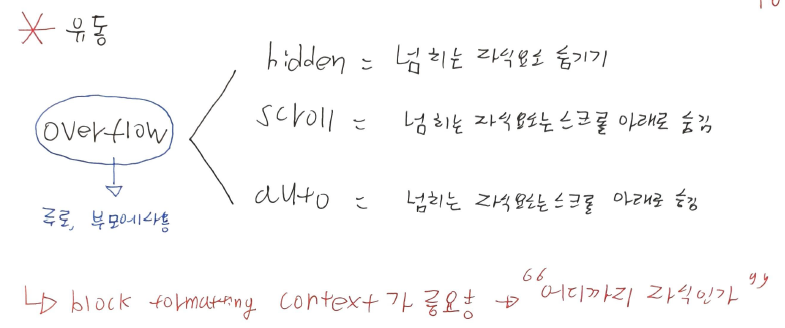 * 유동
overflow
주로, 부모에사용
hidden = 넘치는 자식요소 숨기기
scroll = 넘치는 자식요소는 스크롤 아래로 숨김
auto = 넘치는 자식요소는 스크롤 아래로 숨김
↳ block formatting context가 중요함 → “어디까지 자식인가”